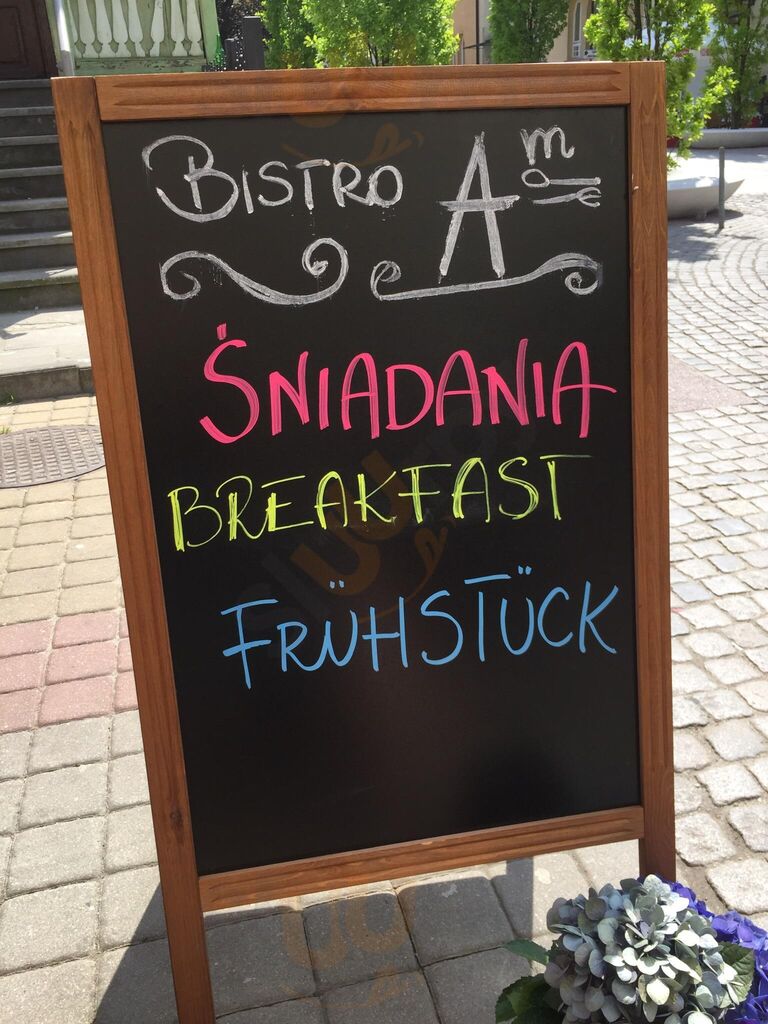 BISTRO Am
ŚNIADANIA
BREAKFAST
FRÜHSTÜCK